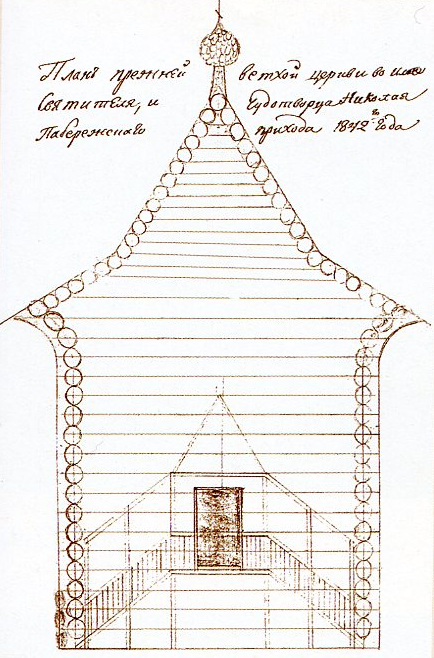 Планъ прежней ветхой церкви во имя
Святителя, и Чудотворца Николая
Пабережскаго прихода 1842го года